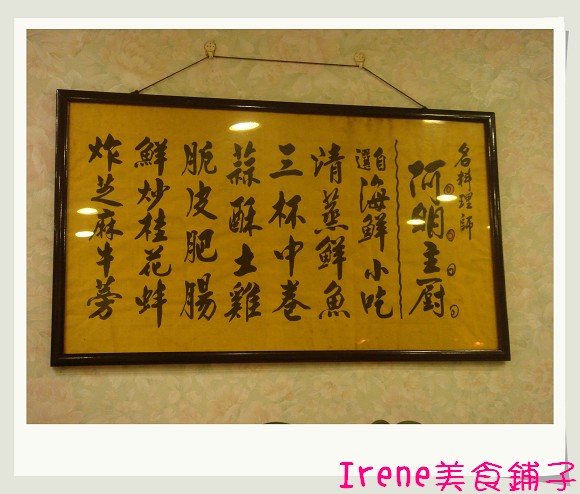 名料理師
阿娟主厨
自選海鮮小吃
清蒸鮮魚
三杯中卷
蒜酥土雞
脆皮肥腸
鮮炒桂花蚌
炸芝麻牛蒡
Irene美食鋪子